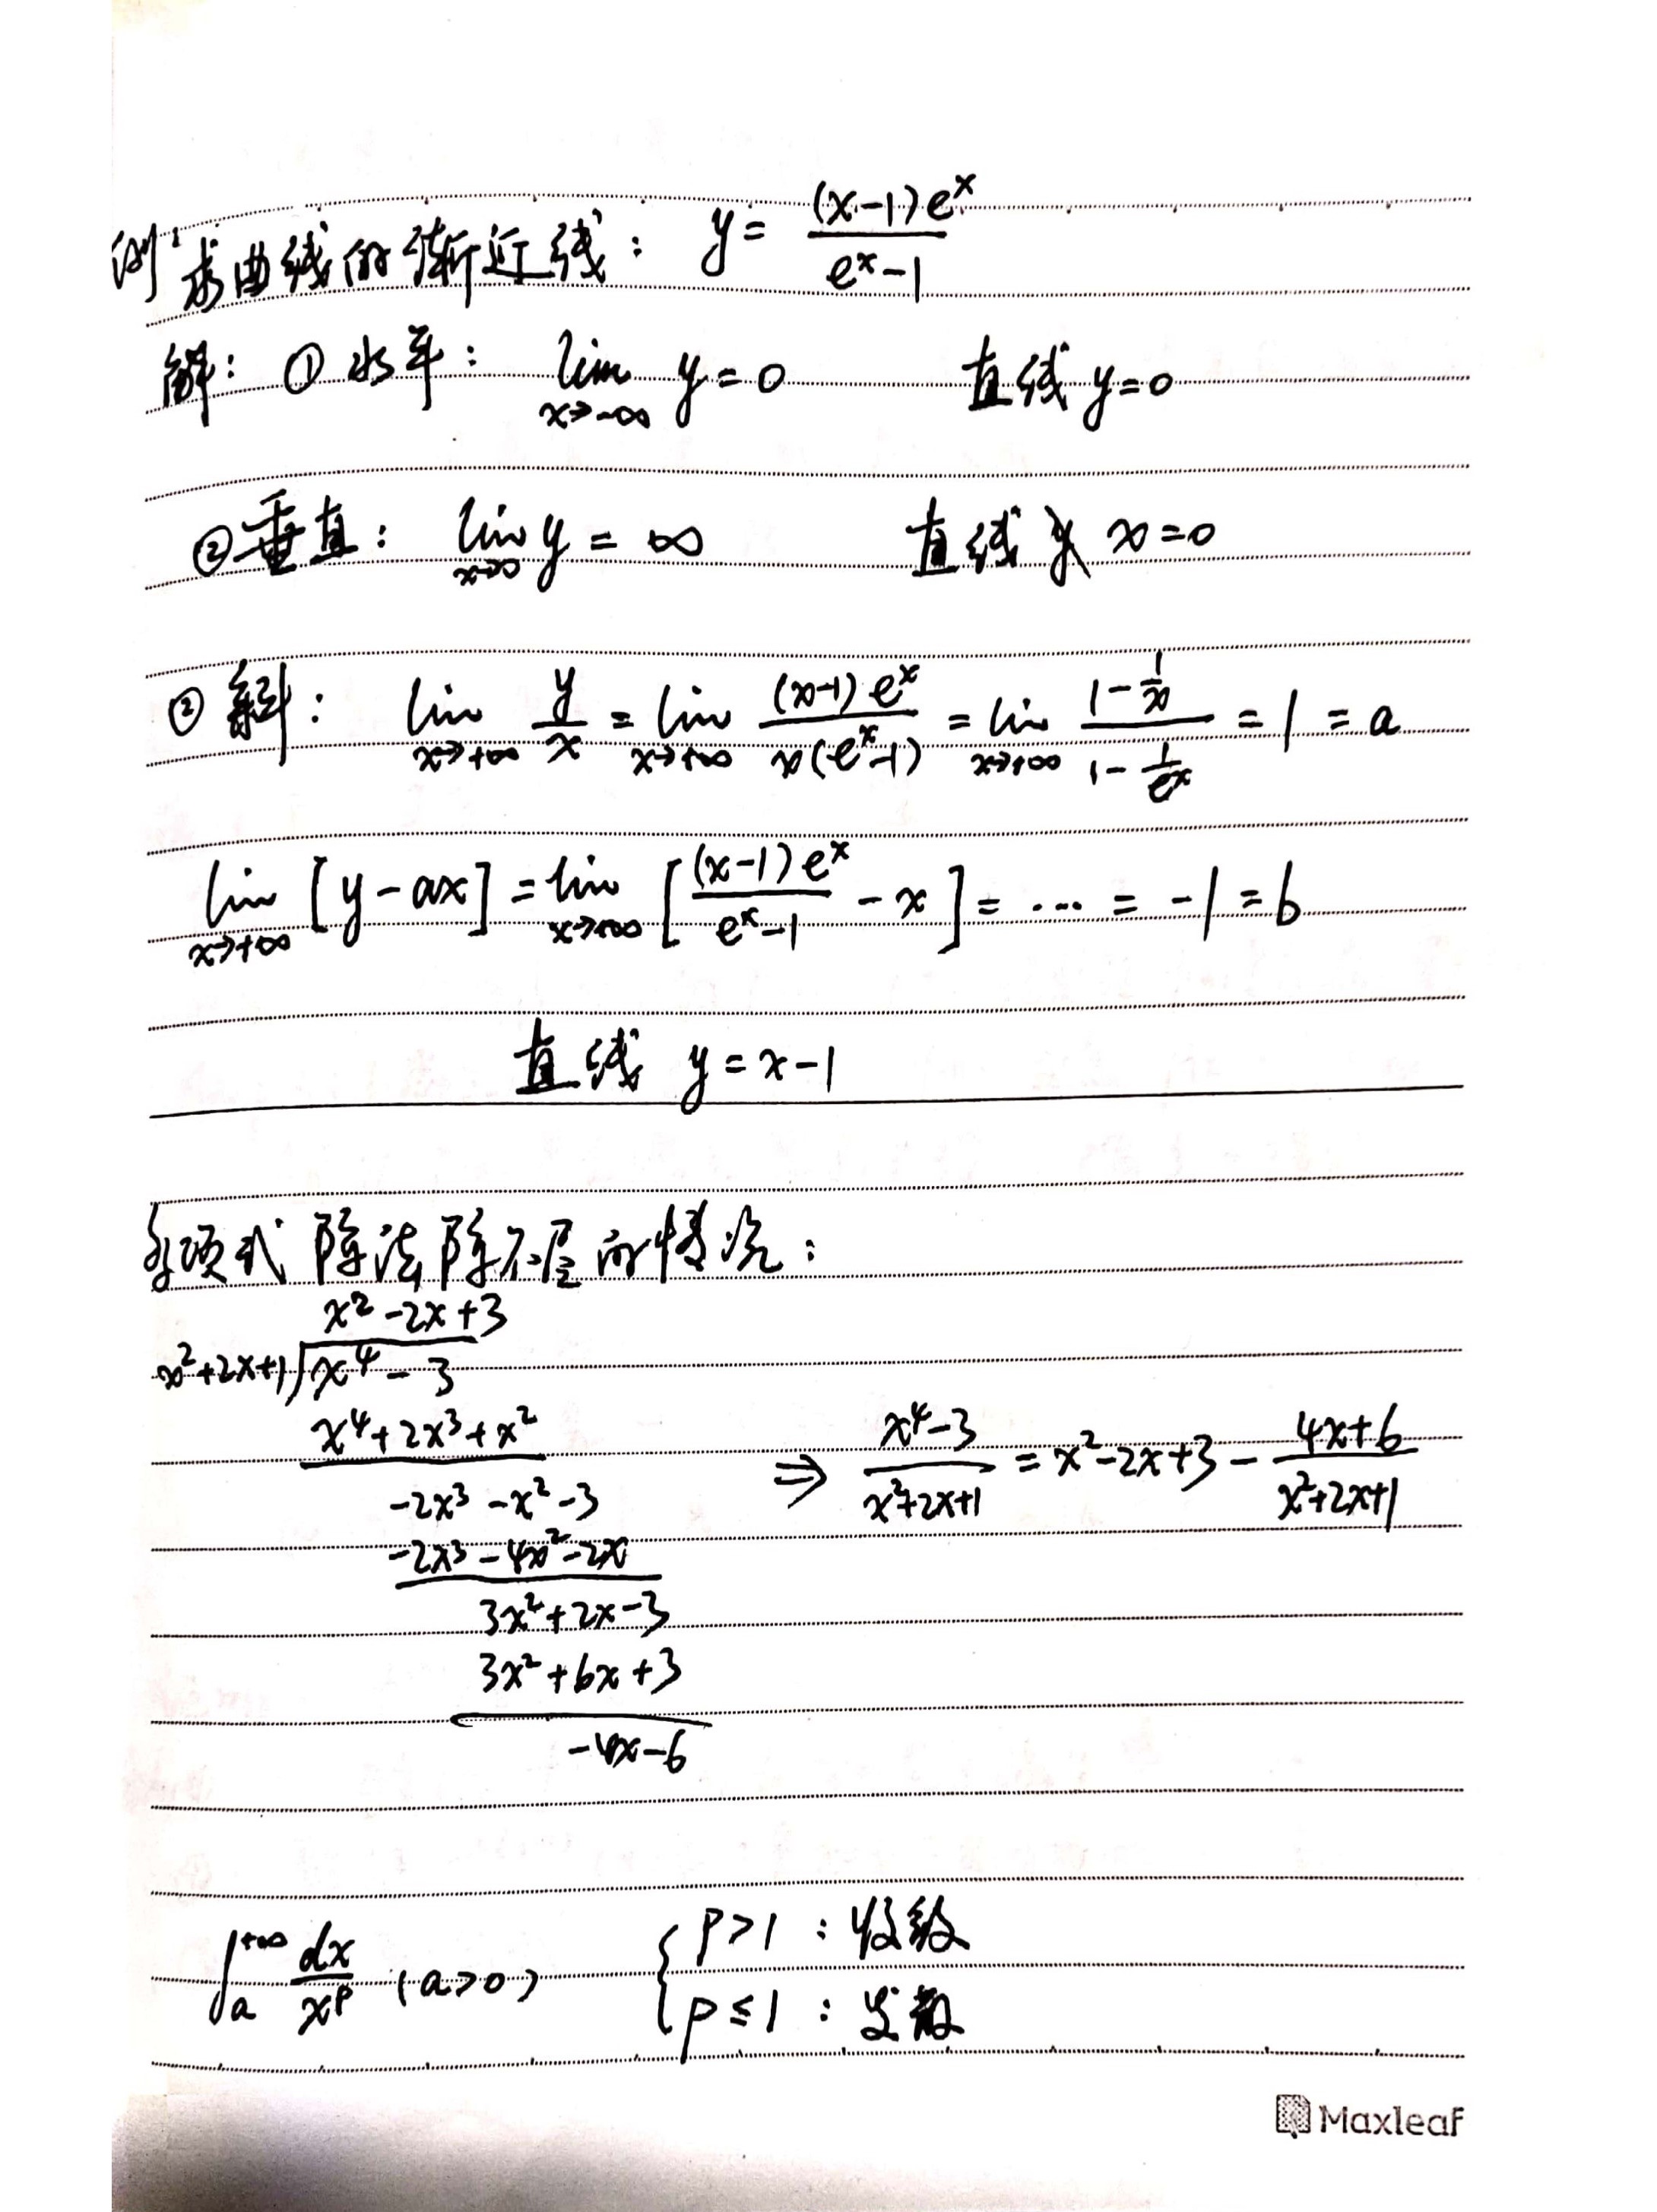 例: 求曲线的渐近线: y = \frac{(x-1)e^x}{e^x-1}
解: ① 水平: \lim_{x→-∞} y = 0 直线 y=0
② 垂直: \lim_{x→0} y = ∞ 直线 x=0
② 斜: \lim_{x→+∞} \frac{y}{x} = \lim_{x→+∞} \frac{(x-1)e^x}{x(e^x-1)} = \lim_{x→+∞} \frac{1-\frac{1}{x}}{1-\frac{1}{e^x}} = 1 = a
\lim_{x→+∞} [y-ax] = \lim_{x→+∞} [\frac{(x-1)e^x}{e^x-1} - x] = ... = -1 = b
直线 y = x-1
多项式除法除不尽的情况:
x^2-2x+3
x^2+2x+1 ) x^4-3
x^4+2x^3+x^2
⇒ \frac{x^4-3}{x^2+2x+1} = x^2-2x+3 - \frac{4x+6}{x^2+2x+1}
-2x^3-x^2-3
-2x^3-4x^2-2x
3x^2+2x-3
3x^2+6x+3
-4x-6
\int_a^{+∞} \frac{dx}{x^p} (a>0) { p>1 : 收敛
p≤1 : 发散
Maxleaf